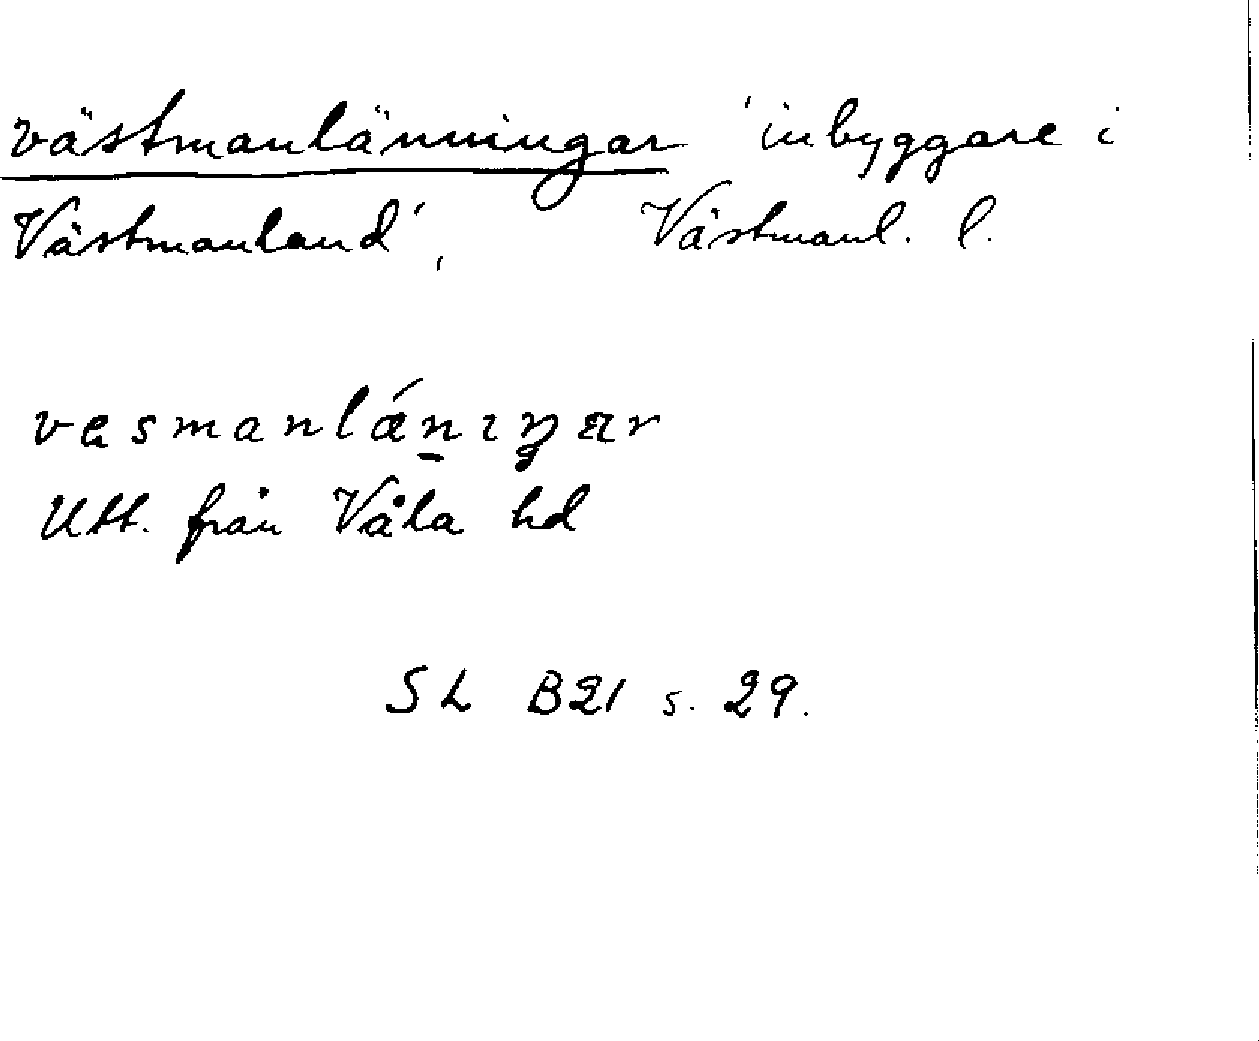 västmanlänningar 'inbyggare i
Västmanland', Västmanl. l.
vesmanlǽn̠ıŋar
Utt. från Våla hd
SL B21 s. 29.